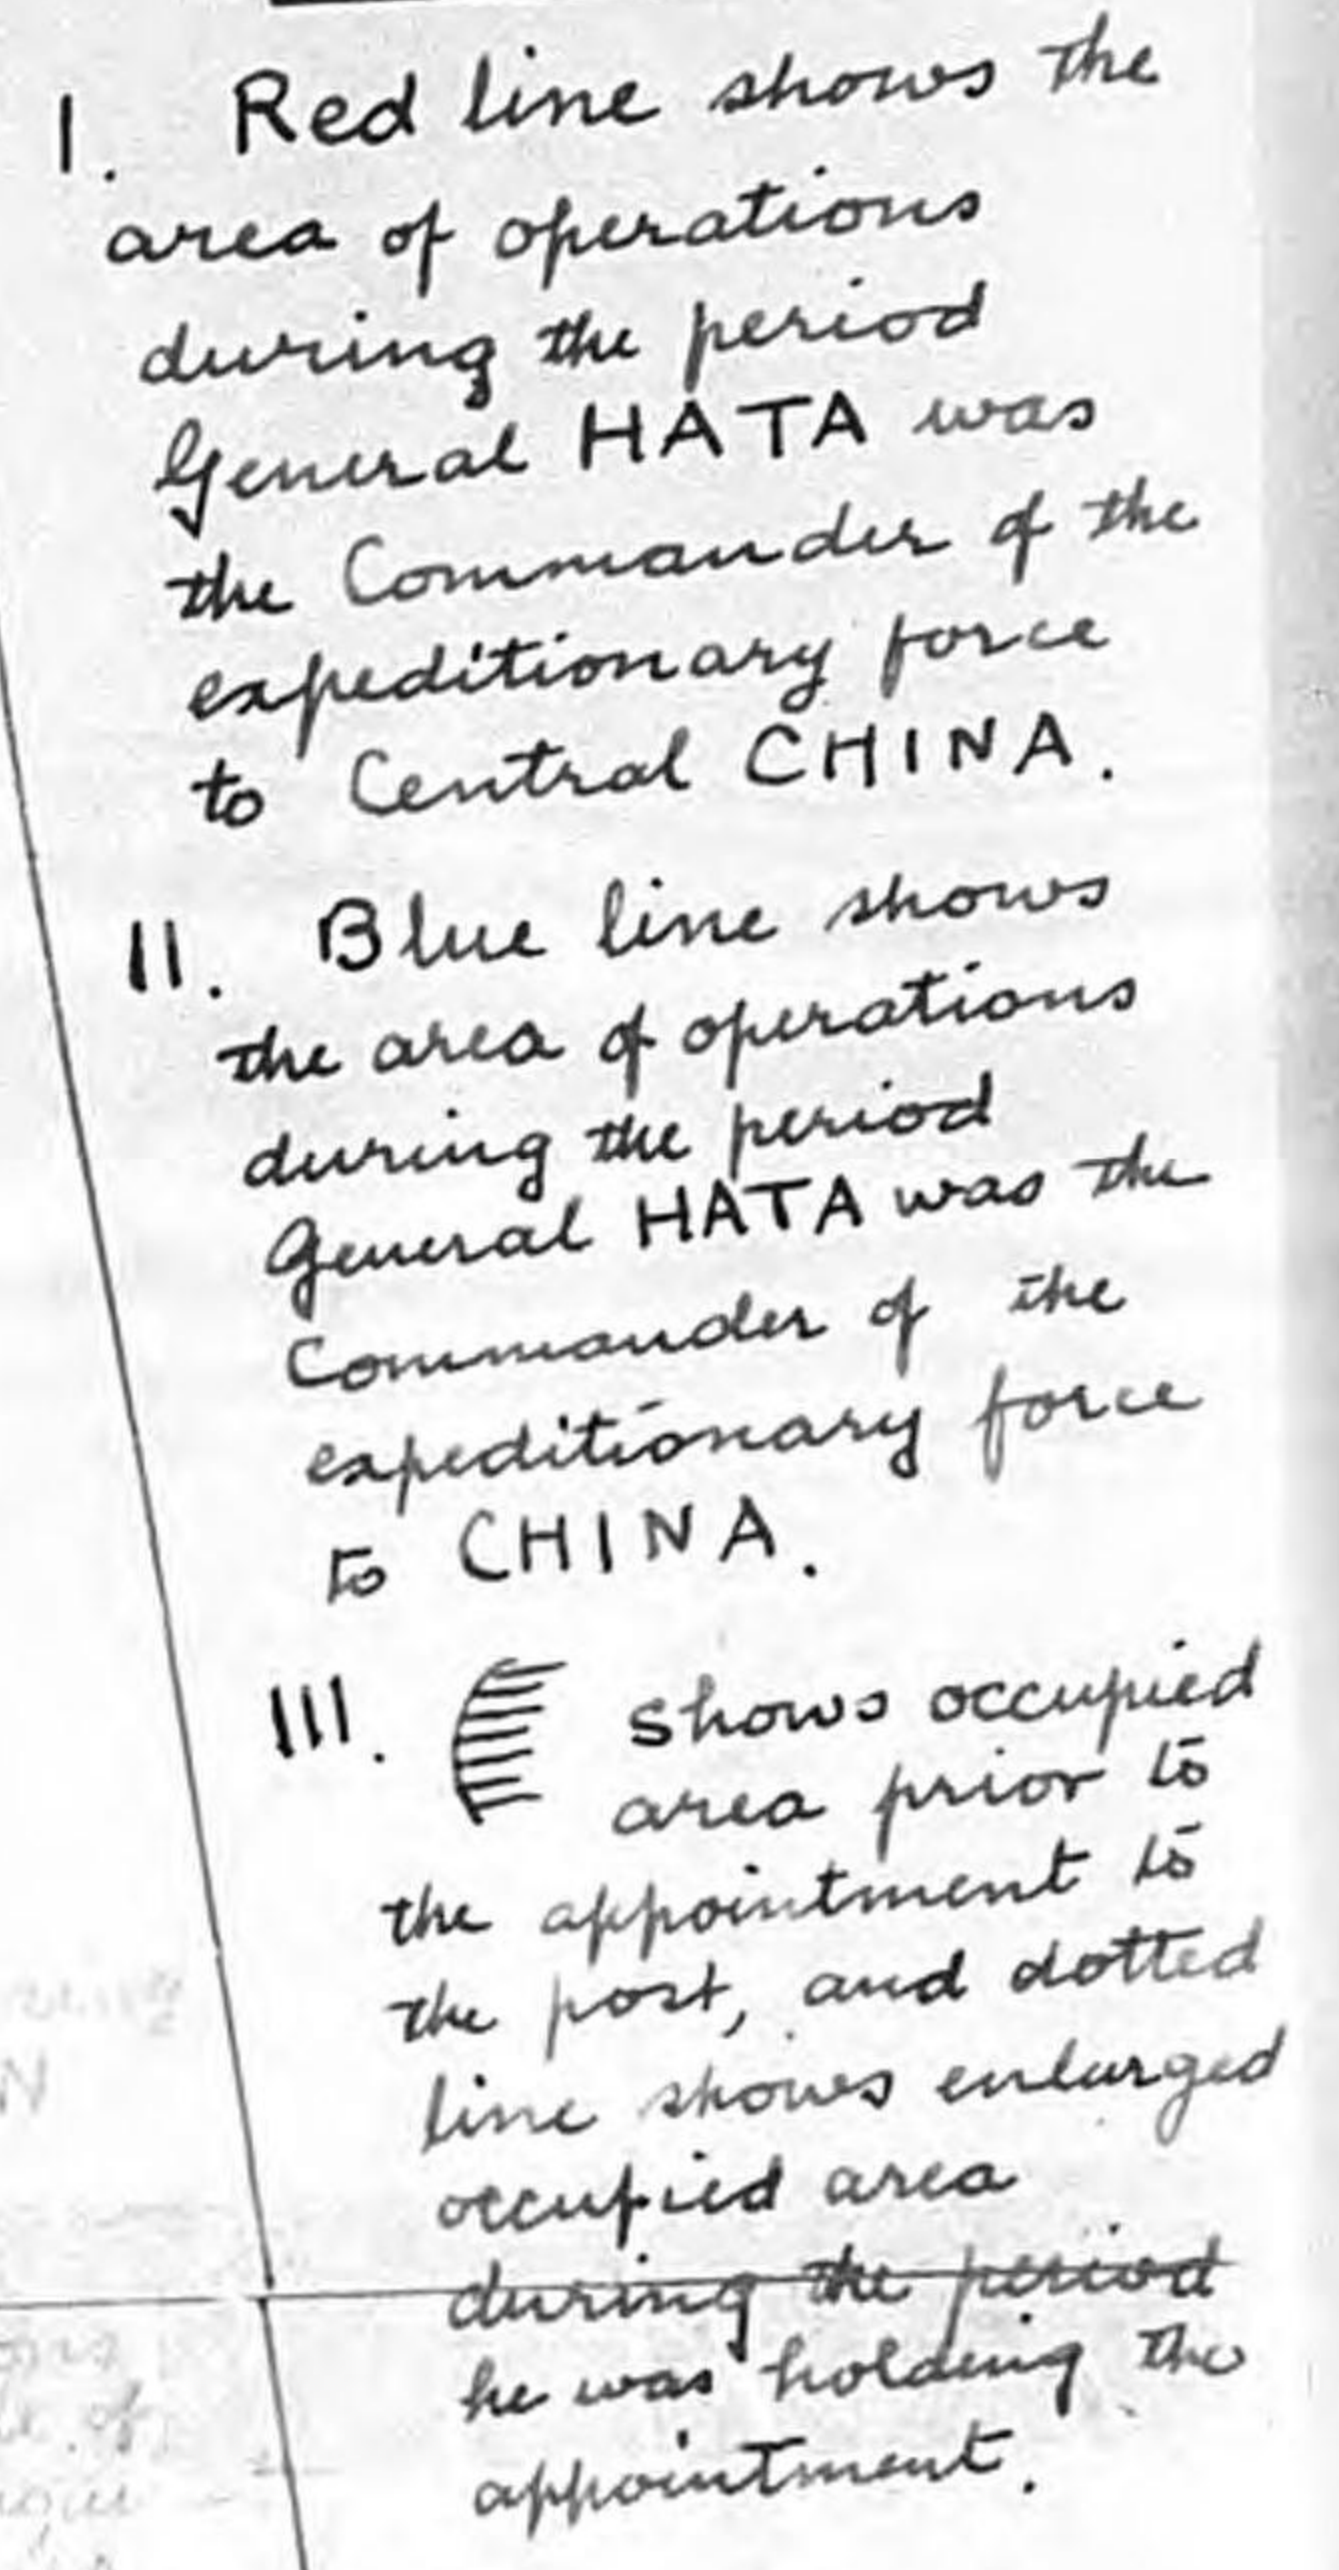 I. Red line shows the
area of operations
during the period
General HATA was
the Commander of the
expeditionary force
to Central CHINA.
II. Blue line shows
the area of operations
during the period
General HATA was the
Commander of the
expeditionary force
to CHINA.
III. shows occupied
area prior to
the appointment to
the post, and dotted
line shows enlarged
occupied area
during the period
he was holding the
appointment.
N
of